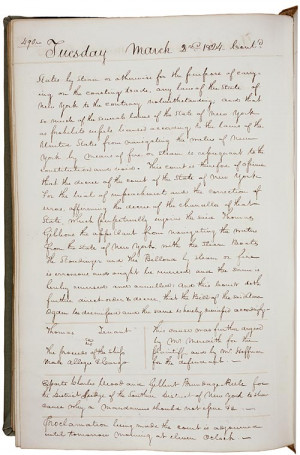 Tuesday March 2nd 1824 Cont'd
States by steam or otherwise for the purpose of carry-
ing on the coasting trade, any laws of the State of
New York to the contrary notwithstanding; and that
so much of the several laws of the State of New York
as prohibits vessels licensed according to the laws of the
United States from navigating the waters of New
York by means of fire or steam is repugnant to the
constitution and void. This court is therefore of opinion
that the decree of the court of the State of New York
for the trial of impeachment and the correction of
errors affirming the decree of the chancellor of that
State which perpetually enjoins the said Thomas
Gibbons the appellant from navigating the waters
from the State of New York with the Steam Boats
the Stoudinger and the Bellona by steam or fire
is erroneous and ought to be reversed and the same is
hereby reversed and annulled. And this court doth
further direct order & decree that the bill of the said Aaron
Ogden be dismissed and the same is hereby dismissed accordingly
Thomas Tenant
vs
This cause was further argued
by Mr. for the
plaintiff and by Mr. Hoffman
for the
Exparte Charles Wood and Gilbert Brundage Rule for
the district Judge of the Southern District of New York to show
cause why a Mandamus should not issue &c
Proclamation being made the court is adjourned
until tomorrow morning at eleven O'clock